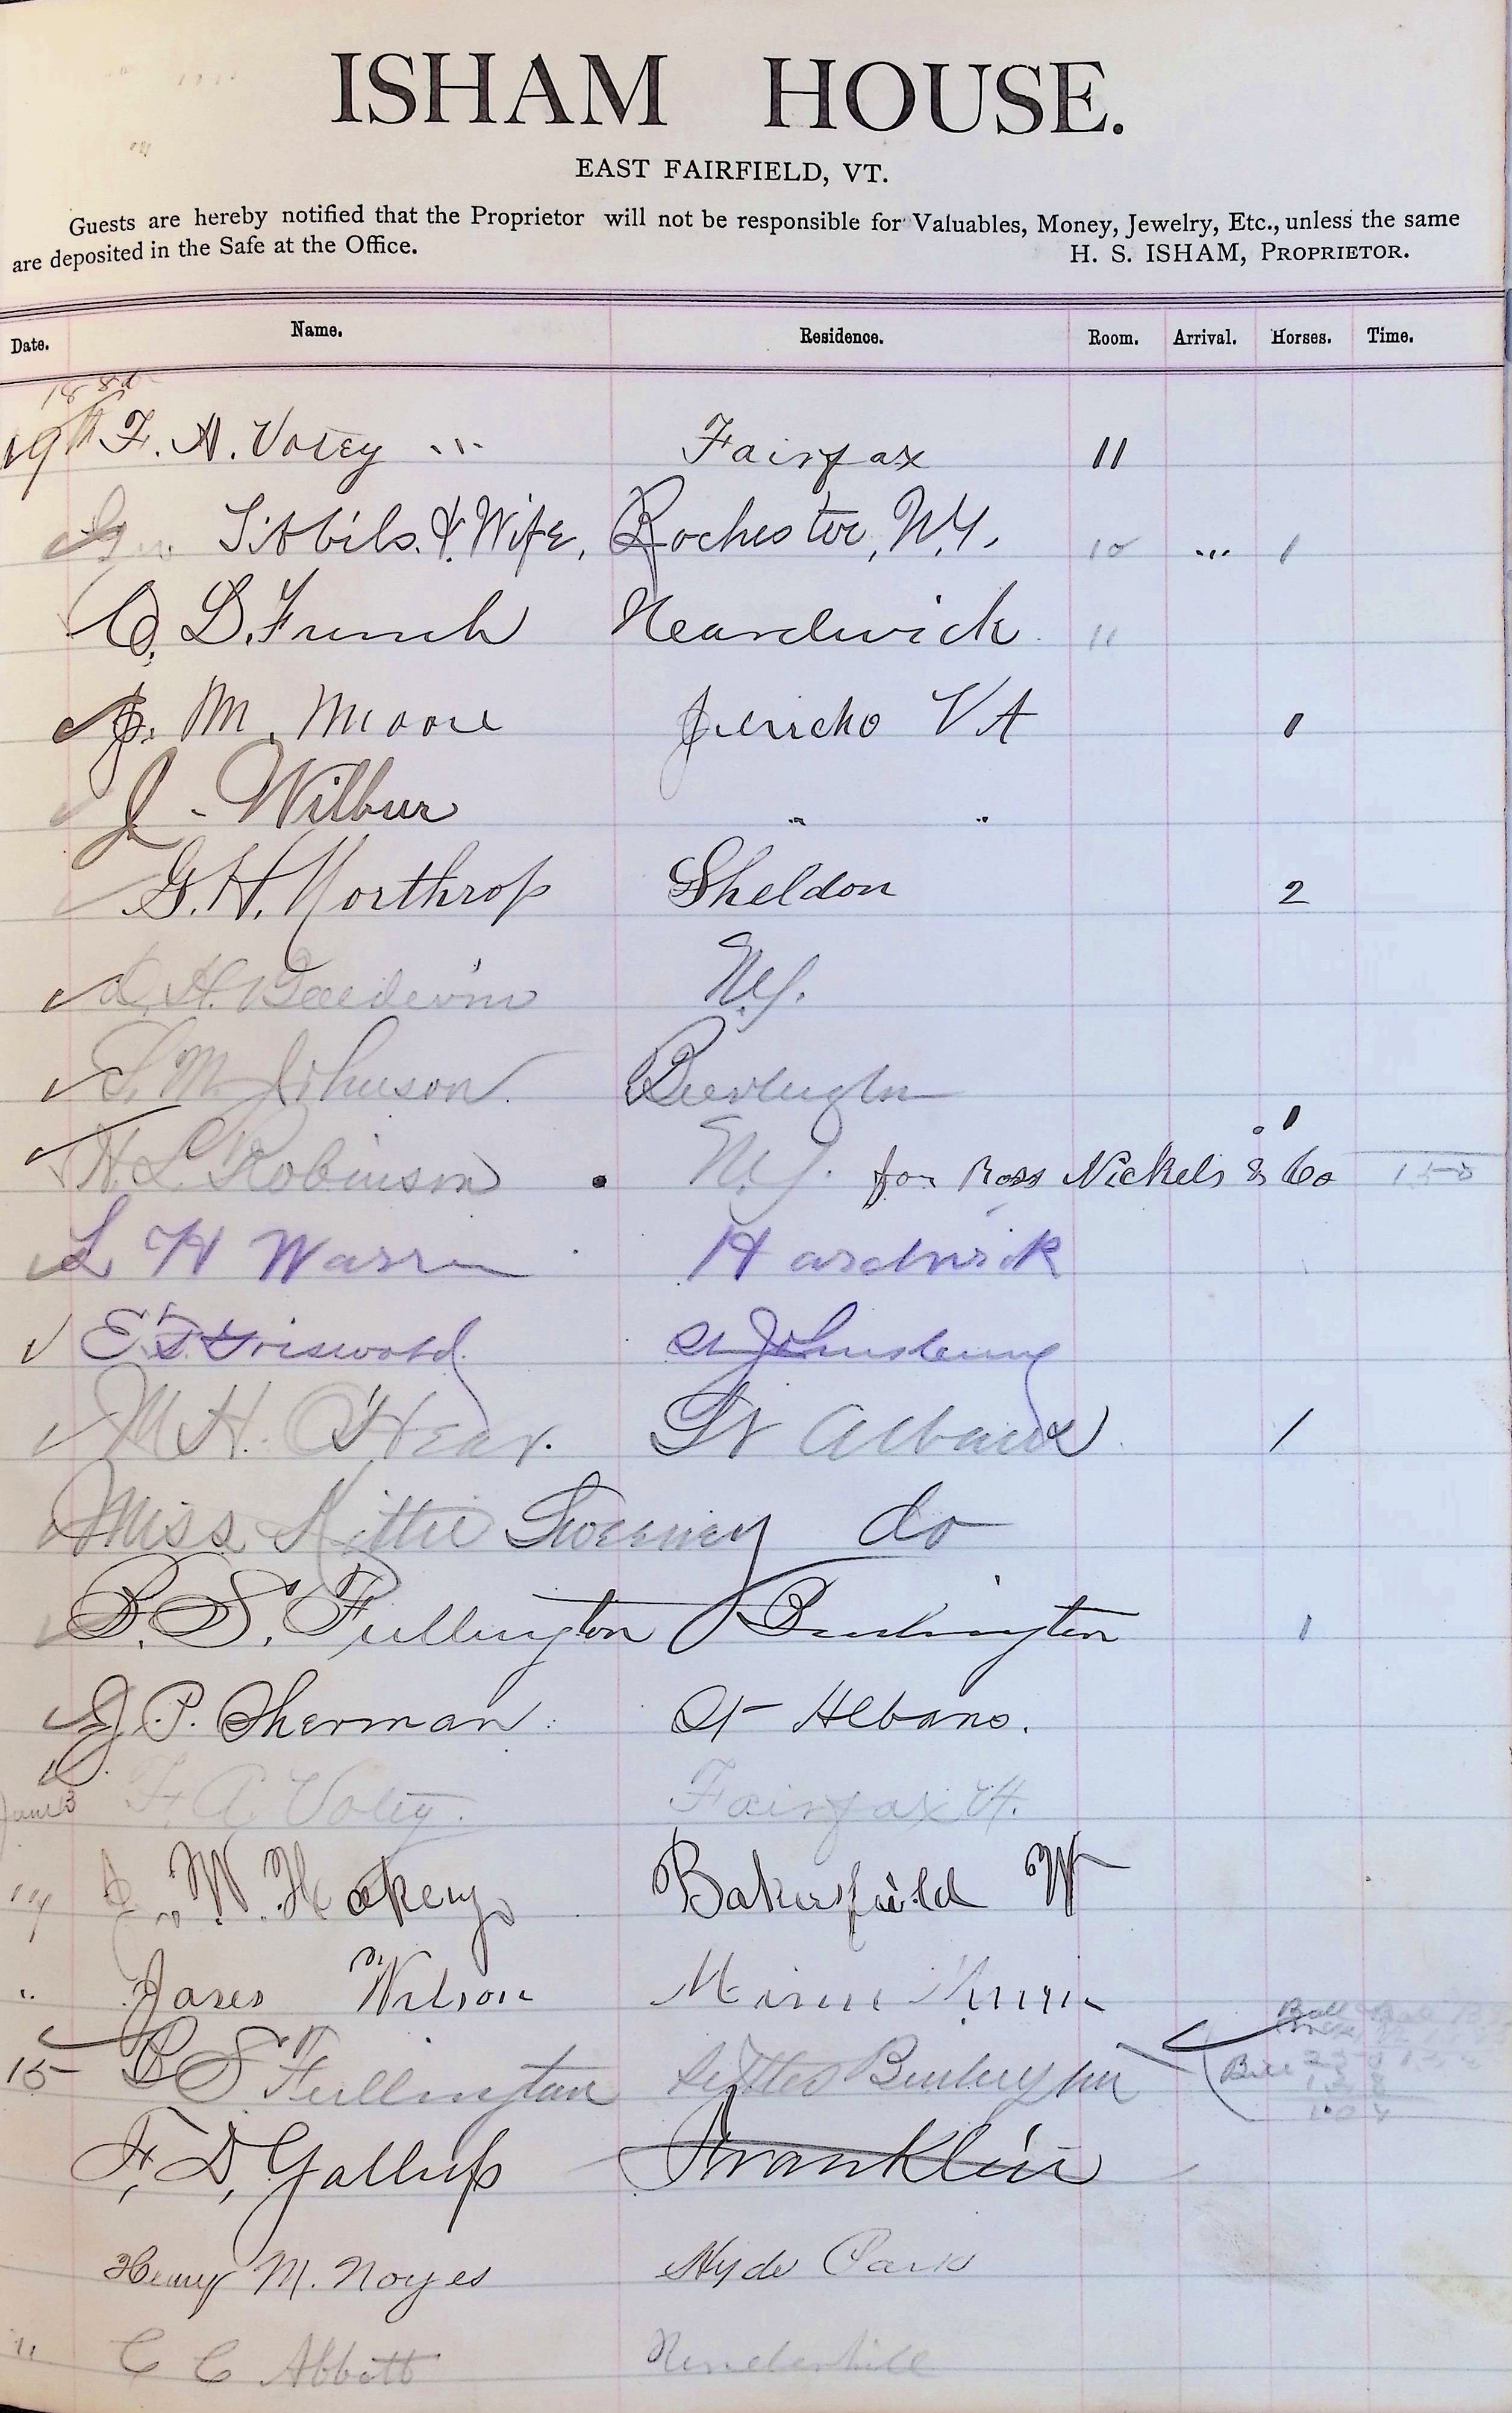 ISHAM HOUSE.
EAST FAIRFIELD, VT.
Guests are hereby notified that the Proprietor will not be responsible for Valuables, Money, Jewelry, Etc., unless the same
are deposited in the Safe at the Office. H. S. ISHAM, PROPRIETOR.
Date. Name. Residence. Room. Arrival. Horses. Time.
19th F. A. Votey Fairfax 11
Tibbils. & Wife, Rochester, N.Y. 10 1
D. French Heardwick 11
J. M. Moore Jericho Vt 1
J. Wilbur " "
G. H. Northrop Sheldon 2
H. Baldwin N.Y.
S. M. Johnson Burlington 1
H. L. Robinson N.Y. for Ross Nickels & Co 150
L H Warren Hardwick
E. Griswold St Johnsbury
M. H. O'Hear. St Albans 1
Miss Kittie Sweeney do
B. S. Fullington Burlington 1
J. P. Sherman St Albans.
June 13 F. A. Votey. Fairfax Vt.
14 W. Bakersfield Vt
" Wilson
15 B S Fullington Burlington Bill
F. D. Gallup Franklin
Henry M. Noyes Hyde Park
" C C Abbott Underhill